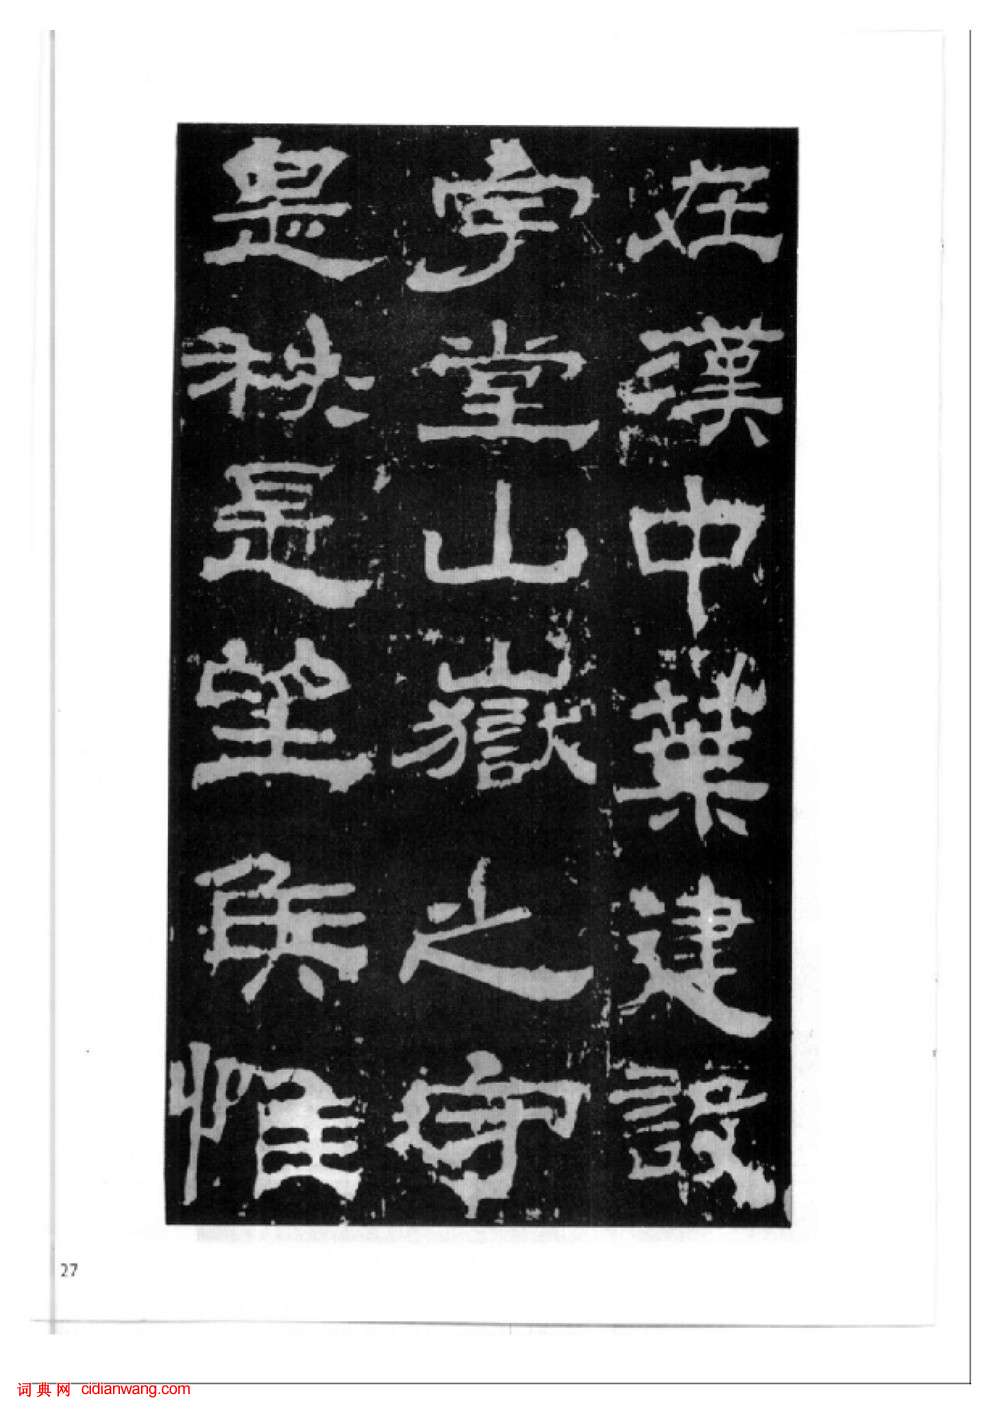 在漢中葉建設
宇堂山嶽之守
是秩是望侯惟
27
词典网 cidianwang.com